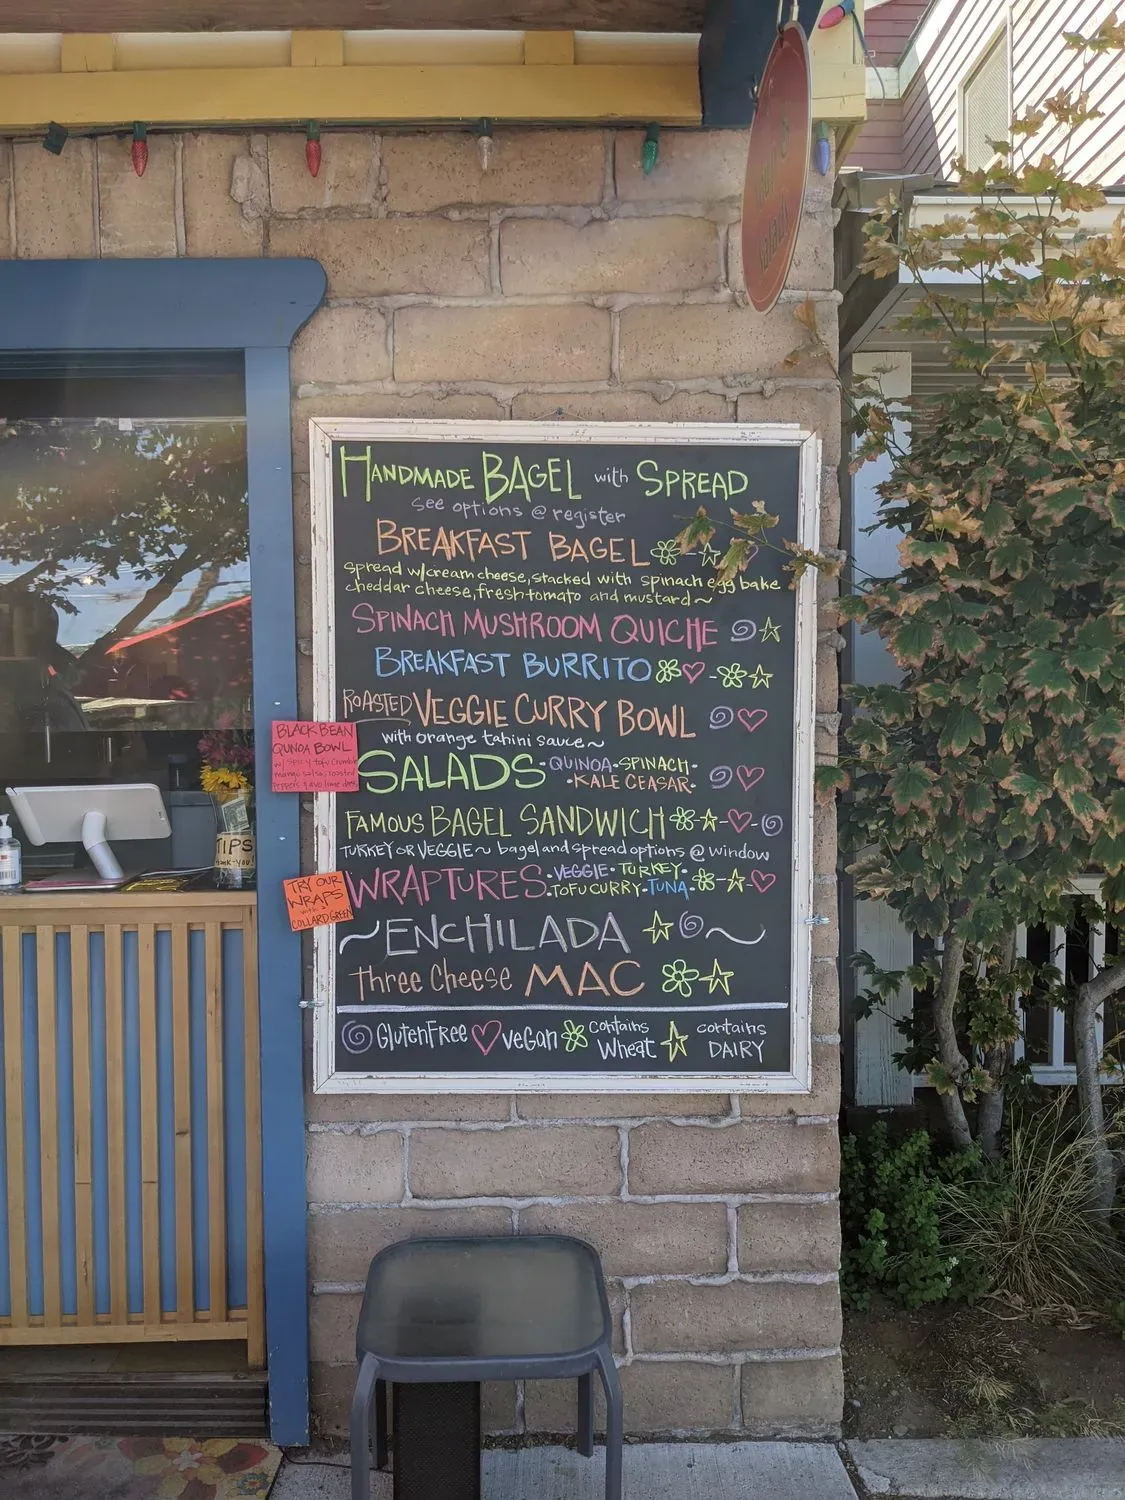 HANDMADE BAGEL with SPREAD
see options @ register
BREAKFAST BAGEL
spread w/cream cheese, stacked with spinach egg bake
cheddar cheese, fresh tomato and mustard~
SPINACH MUSHROOM QUICHE
BREAKFAST BURRITO
ROASTED VEGGIE CURRY BOWL
with orange tahini sauce~
SALADS •QUINOA•SPINACH•
•KALE CEASAR•
FAMOUS BAGEL SANDWICH
TURKEY OR VEGGIE~ bagel and spread options @ window
WRAPTURES •VEGGIE•TURKEY•
•TOFU CURRY•TUNA
~ENCHILADA
Three Cheese MAC
GlutenFree vegan contains Wheat contains DAIRY
BLACK BEAN
QUINOA BOWL
w/ spicy tofu crumble
mango salsa, roasted
peppers
TRY OUR
WRAPS
with a
COLLARD GREEN
TIPS